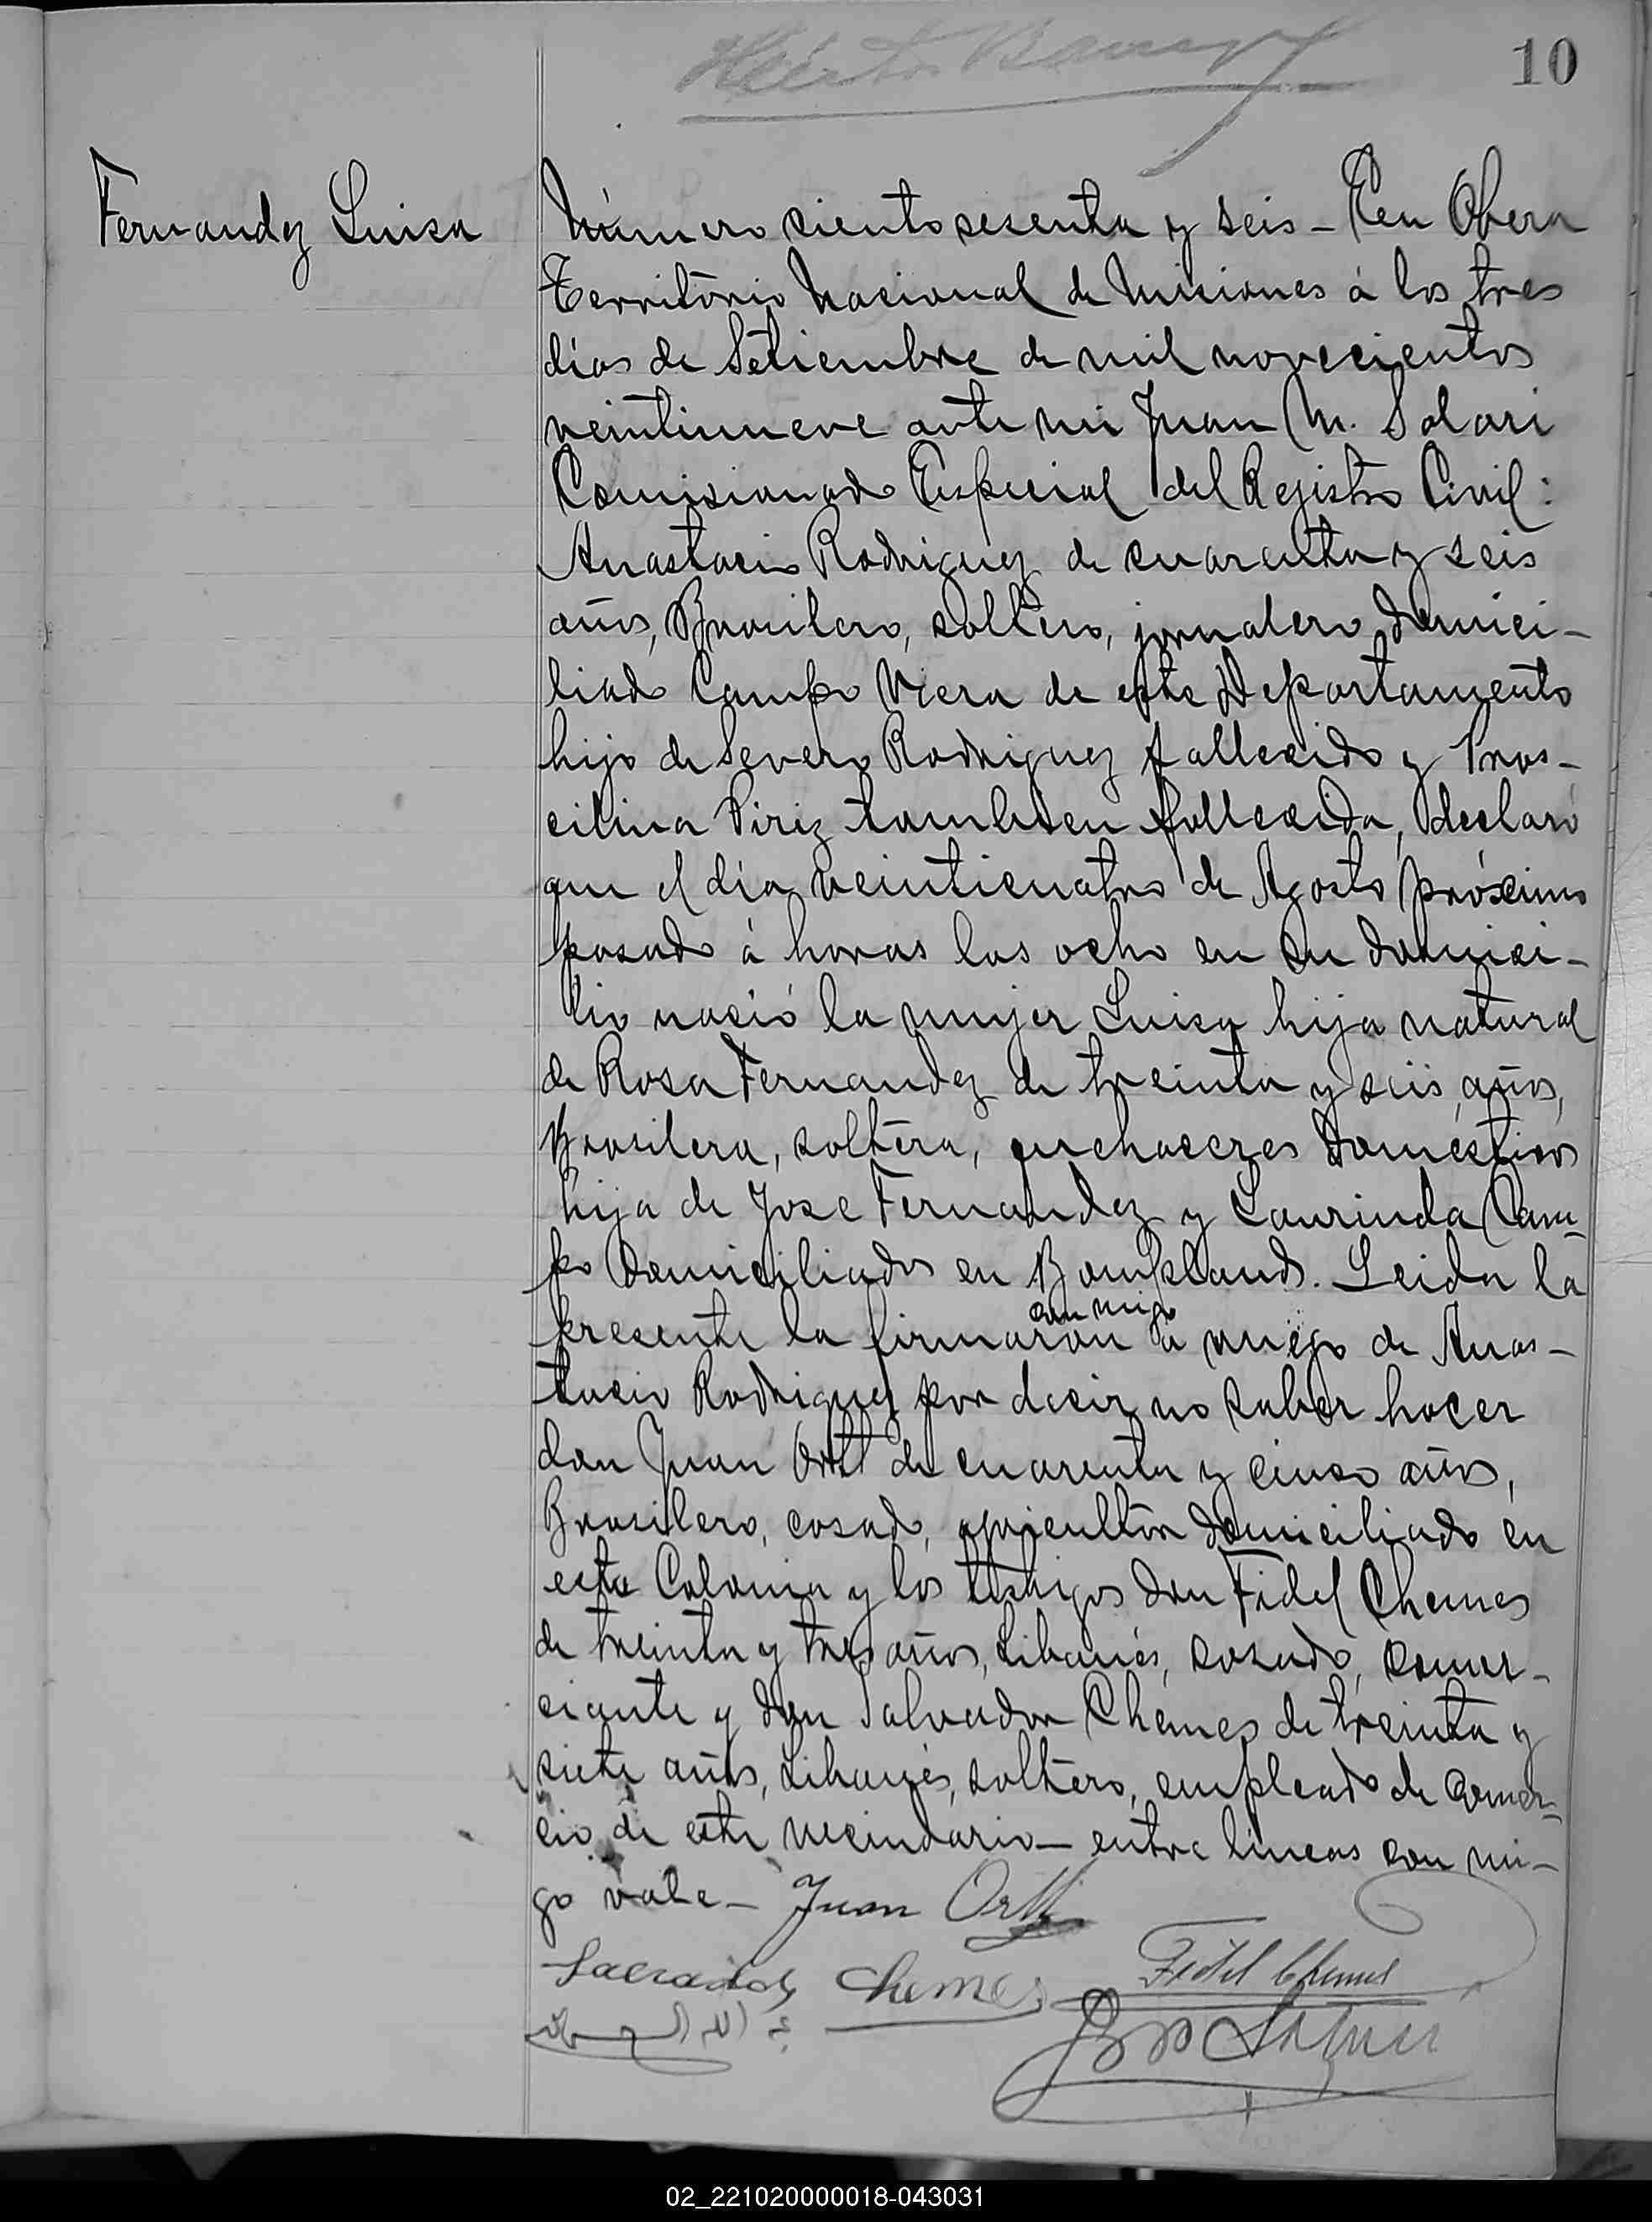 10
Fernandez Luisa
Número ciento sesenta y seis - En Obera
Territorio Nacional de Misiones á los tres
días de Setiembre de mil novecientos
veintinueve ante mi Juan M. Solari
Comisionado Especial del Registro Civil:
Anastacio Rodriguez de cuarenta y seis
años, Brasilero, soltero, jornalero domici-
liado Campo Viera de este Departamento
hijo de Severo Rodriguez fallecido y
Piriz tambien fallecida, declaró
que el día veinticuatro de Agosto próximo
pasado á horas las ocho en su domici-
lio nació la mujer Luisa hija natural
de Rosa Fernandez de treinta y seis años,
Brasilera, soltera, quehaceres domésticos
hija de Jose Fernandez y Laurinda Cam-
po domiciliados en Bompland. Leida la
con migo
presente la firmaron á ruego de Anas-
tacio Rodriguez por decir no saber hacer
don Juan Ortt de cuarenta y cinco años,
Brasilero, casado, agricultor domiciliado en
esta Colonia y los testigos don Fidel Chemes
de treinta y tres años, Libanés, casado, comer-
ciante y don Salvador Chemes de treinta y
siete años, Libanés, soltero, empleado de comer-
cio de este vecindario - entre lineas con mi-
go vale - Juan
Chemes Fidel Chemes
02_221020000018-043031